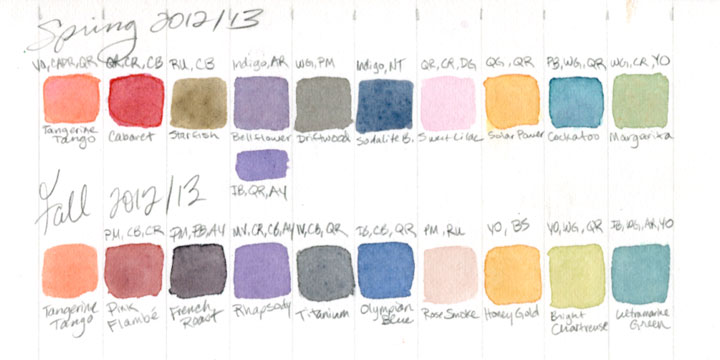 Spring 2012/13
QR, CR, CB RU, CB Indigo, AR WG, PM Indigo, NT QR, CR, DG QG, QR PB, WG, QR WG, CR, YO
Tangerine Cabaret Starfish Bellflower Driftwood Sodalite B. Sweet Lilac Solar Power Cockatoo Margarita
Tango
IB, QR, AY
Fall 2012/13
PM, CB, CR PM, PB, AY MV, CR, CB, AY IV, CB, QR IB, CB, QR PM, RU YO, BS YO, WG, QR IB, WG, AR, YO
Tangerine Pink French Rhapsody Titanium Olympian Rose Smoke Honey Gold Bright Ultramarine
Tango Flambé Roast Blue Chartreuse Green